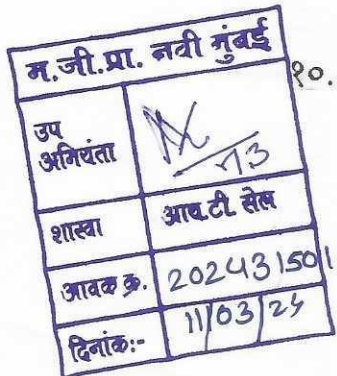 म.जी.प्रा. नवी मुंबई
१०.
उप
अभियंता
13
शाखा आय.टी. सेल
आवक क्र. 202431501
दिनांक:- 11/03/25